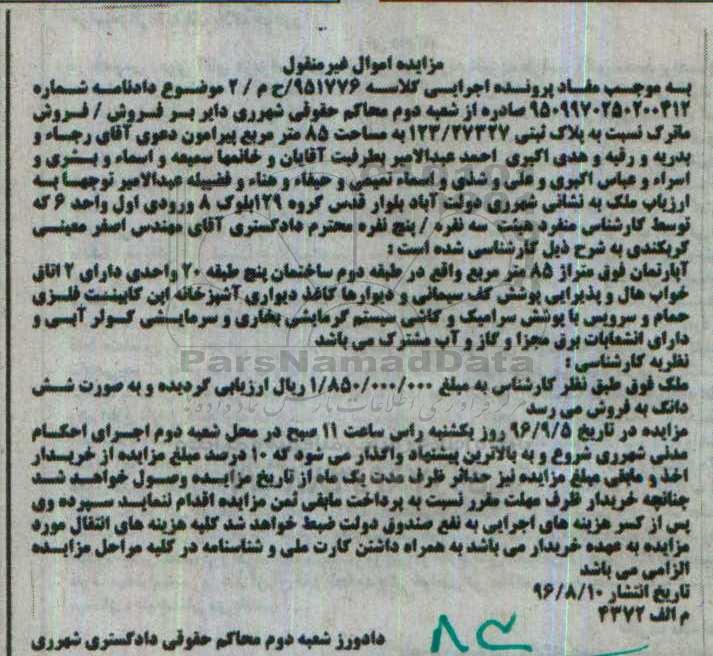 مزایده اموال غیرمنقول
به موجب مفاد پرونده اجرایی کلاسه ۹۵۱۷۷۶/ح م / ۲ موضوع دادنامه شماره
۹۵۰۹۹۷۰۲۵۰۲۰۰۴۱۲ صادره از شعبه دوم محاکم حقوقی شهرری دایر بر فروش / فروش
ماترک نسبت به پلاک ثبتی ۱۲۳/۲۷۳۲۷ به مساحت ۸۵ متر مربع پیرامون دعوی آقای رجاء و
بدریه و رقیه و هدی اکبری احمد عبدالامیر بطرفیت آقایان و خانمها سمیعه و اسماء و بشری و
اسراء و عباس اکبری و علی و شذی و اسماء تمیمی و حیفاء و هناء و فضیله عبدالامیر توجهاً به
ارزیاب ملک به نشانی شهرری دولت آباد بلوار قدس گروه ۱۲۹بلوک ۸ ورودی اول واحد ۶ که
توسط کارشناس منفرد هیئت سه نفره / پنج نفره محترم دادگستری آقای مهندس اصغر معینی
کربکندی به شرح ذیل کارشناسی شده است :
آپارتمان فوق متراژ ۸۵ متر مربع واقع در طبقه دوم ساختمان پنج طبقه ۲۰ واحدی دارای ۲ اتاق
خواب هال و پذیرایی پوشش کف سیمانی و دیوارها کاغذ دیواری آشپزخانه اپن کابینت فلزی
حمام و سرویس با پوشش سرامیک و کاشی سیستم گرمایشی بخاری و سرمایشی کولر آبی و
دارای انشعابات برق مجزا و گاز و آب مشترک می باشد
ParsNamadData
نظریه کارشناسی :
ملک فوق طبق نظر کارشناس به مبلغ ۱/۸۵۰/۰۰۰/۰۰۰ ریال ارزیابی گردیده و به صورت شش
دانگ به فروش می رسد
مزایده در تاریخ ۹۶/۹/۵ روز یکشنبه راس ساعت ۱۱ صبح در محل شعبه دوم اجرای احکام
مدنی شهرری شروع و به بالاترین پیشنهاد واگذار می شود که ۱۰ درصد مبلغ مزایده از خریدار
اخذ و مابقی مبلغ مزایده نیز حداقر ظرف مدت یک ماه از تاریخ مزایده وصول خواهد شد
چنانچه خریدار ظرف مهلت مقرر نسبت به پرداخت مابقی ثمن مزایده اقدام ننماید سپرده وی
پس از کسر هزینه های اجرایی به نفع صندوق دولت ضبط خواهد شد کلیه هزینه های انتقال مورد
مزایده به عهده خریدار می باشد به همراه داشتن کارت ملی و شناسنامه در کلیه مراحل مزایده
الزامی می باشد
تاریخ انتشار ۹۶/۸/۱۰
م الف ۴۳۷۲
دادورز شعبه دوم محاکم حقوقی دادگستری شهرری